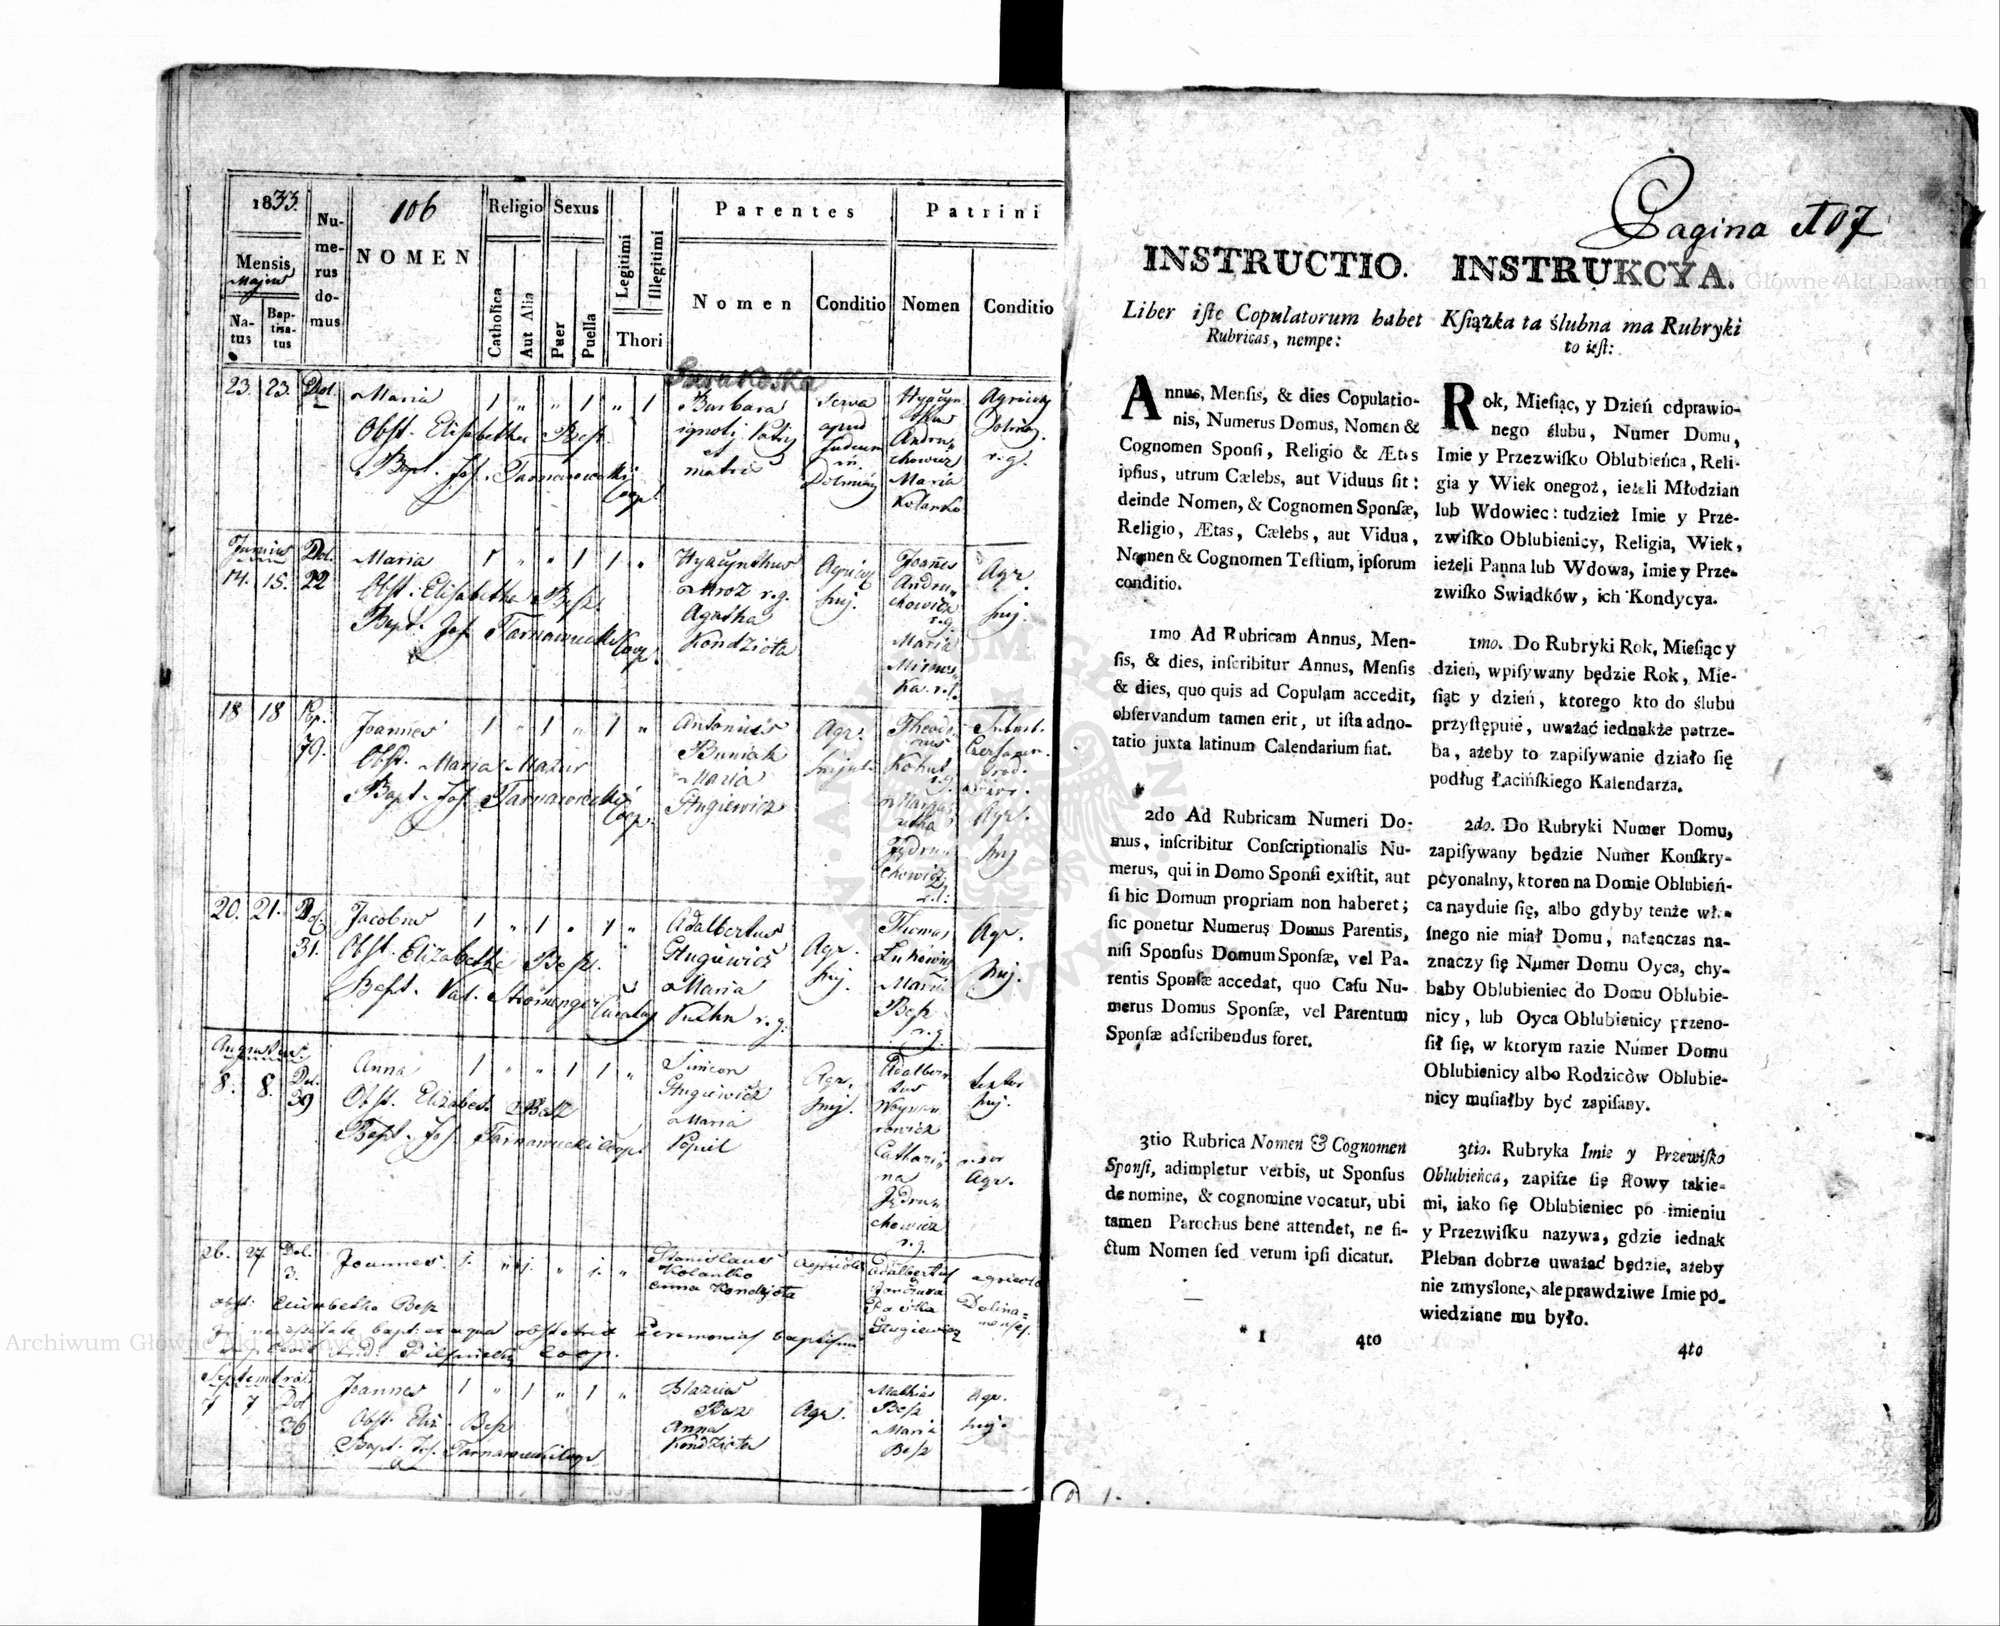 1833.
106
Mensis
Majus
Na-
tus
Bap-
tisa-
tus
Nu-
me-
rus
do-
mus
NOMEN
Religio
Catholica
Aut Alia
Sexus
Puer
Puella
Legitimi
Illegitimi
Thori
Parentes
Nomen
Conditio
Patrini
Nomen
Conditio
23 23. Dol. Maria 1 „ „ 1 „ 1
Obst. Elisabetha Besz
Bapt. Jos. Tarnawiecki
Coop.
Barbara
ignoti Patris
et
matris
Serva
apud
Judeum
Hyacyn-
Andru-
chowicz
Maria
Kolanko
r. g.
Junius
14. 15. Dol. 22 Maria 1 „ „ 1 1 „
Obst. Elisabetha Besz.
Bapt. Jos. Tarnawiecki
Coop.
Hyacynthus
Mroz r. g.
Agatha
Kondziola
huj.
Joannes
Andru-
chowicz
r. g.
Maria
Agr.
huj.
18 18 79. Joannes 1 „ 1 „ 1 „
Obst. Maria Mazur
Bapt. Jos. Tarnawiecki
Coop.
Antonius
Buniak
Maria
Stugiewicz
Agr.
Theodo-
rus
Kohut
r. g.
Marga-
retha
Jędru-
chowicz
Agr.
huj
20. 21. Dol. 31. Jacobus 1 „ 1 „ 1 „
Obst. Elizabetha Besz.
Bapt. Val. Curatus
Adalbertus
Stugiewicz
Maria
r. g.
Agr.
huj.
Thomas
Maria
Besz
r. g.
Agr.
huj.
Augustus.
8. 8. Dol. 39 Anna 1 „ „ 1 1 „
Obst. Elizabet. Besz
Bapt. Jos. Tarnawiecki Coop.
Simeon
Stugiewicz
Maria
Popiel
Agr.
huj.
Adalber-
tus
Catharii-
na
Jędru-
chowicz
r. g.
huj.
uxor
Agr.
26. 27 Dol. 3. Joannes. 1. „ 1. „ 1. „
Stanislaus
Kolanko
Anna Kondziola
agricola
Adalbertus
Stugiewicz
agricola
Dolina-
nenses.
obst: Elisabetha Besz
necessitate bapt: ex aqua obstetrix ceremonias baptismi
Coop.
Septembris
7 7 Dol 36 Joannes 1 „ 1 „ 1 „
Obst. Eliz. Besz
Bapt. Jos. Tarnawiecki Coop
Blazius
Anna
Kondziola
Agr.
Mathias
Besz
Maria
Besz
Agr.
huj.
Pagina 107
INSTRUCTIO.
Liber iste Copulatorum habet
Rubricas, nempe:
Annus, Mensis, & dies Copulatio-
nis, Numerus Domus, Nomen &
Cognomen Sponsi, Religio & Ætas
ipsius, utrum Cælebs, aut Viduus sit:
deinde Nomen, & Cognomen Sponsæ,
Religio, Ætas, Cælebs, aut Vidua,
Nomen & Cognomen Testium, ipsorum
conditio.
1mo Ad Rubricam Annus, Men-
sis, & dies, inscribitur Annus, Mensis
& dies, quo quis ad Copulam accedit,
observandum tamen erit, ut ista adno-
tatio juxta latinum Calendarium fiat.
2do Ad Rubricam Numeri Do-
mus, inscribitur Conscriptionalis Nu-
merus, qui in Domo Sponsi existit, aut
si hic Domum propriam non haberet;
sic ponetur Numerus Domus Parentis,
nisi Sponsus Domum Sponsæ, vel Pa-
rentis Sponsæ accedat, quo Casu Nu-
merus Domus Sponsæ, vel Parentum
Sponsæ adscribendus foret.
3tio Rubrica Nomen & Cognomen
Sponsi, adimpletur verbis, ut Sponsus
de nomine, & cognomine vocatur, ubi
tamen Parochus bene attendet, ne fi-
ctum Nomen sed verum ipsi dicatur.
* 1
4to
INSTRUKCYA.
Książka ta ślubna ma Rubryki
to iest:
Rok, Miesiąc, y Dzień odprawio-
nego ślubu, Numer Domu,
Imie y Przezwisko Oblubieńca, Reli-
gia y Wiek onegoż, ieżeli Młodzian
lub Wdowiec: tudzież Imie y Prze-
zwisko Oblubienicy, Religia, Wiek,
ieżeli Panna lub Wdowa, Imie y Prze-
zwisko Swiadków, ich Kondycya.
1mo. Do Rubryki Rok, Miesiąc y
dzień, wpisywany będzie Rok, Mie-
siąc y dzień, ktorego kto do ślubu
przystępuie, uważać iednakże potrze-
ba, ażeby to zapisywanie działo się
podług Łacińskiego Kalendarza.
2do. Do Rubryki Numer Domu,
zapisywany będzie Numer Konskry-
pcyonalny, ktoren na Domie Oblubień-
ca nayduie się, albo gdyby tenże wła-
snego nie miał Domu, natenczas na-
znaczy się Numer Domu Oyca, chy-
baby Oblubieniec do Domu Oblubie-
nicy, lub Oyca Oblubienicy przeno-
sił się, w ktorym razie Numer Domu
Oblubienicy albo Rodziców Oblubie-
nicy musiałby być zapisany.
3tio. Rubryka Imie y Przewisko
Oblubieńca, zapisze się słowy takie-
mi, iako się Oblubieniec po imieniu
y Przezwisku nazywa, gdzie iednak
Pleban dobrze uważać będzie, ażeby
nie zmyslone, ale prawdziwe Imie po-
wiedziane mu było.
4to
Archiwum Główne Akt Dawnych